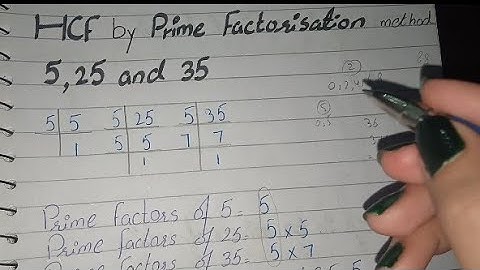 HCF by Prime Factorisation method
5, 25 and 35
(2)
(5)
0,5
35
5 | 5 5 | 25 5 | 35
1 5 | 5 7 | 7
1 1
Prime factors of 5 = 5
Prime factors of 25 = 5 x 5
Prime factors of 35 = 5 x 7